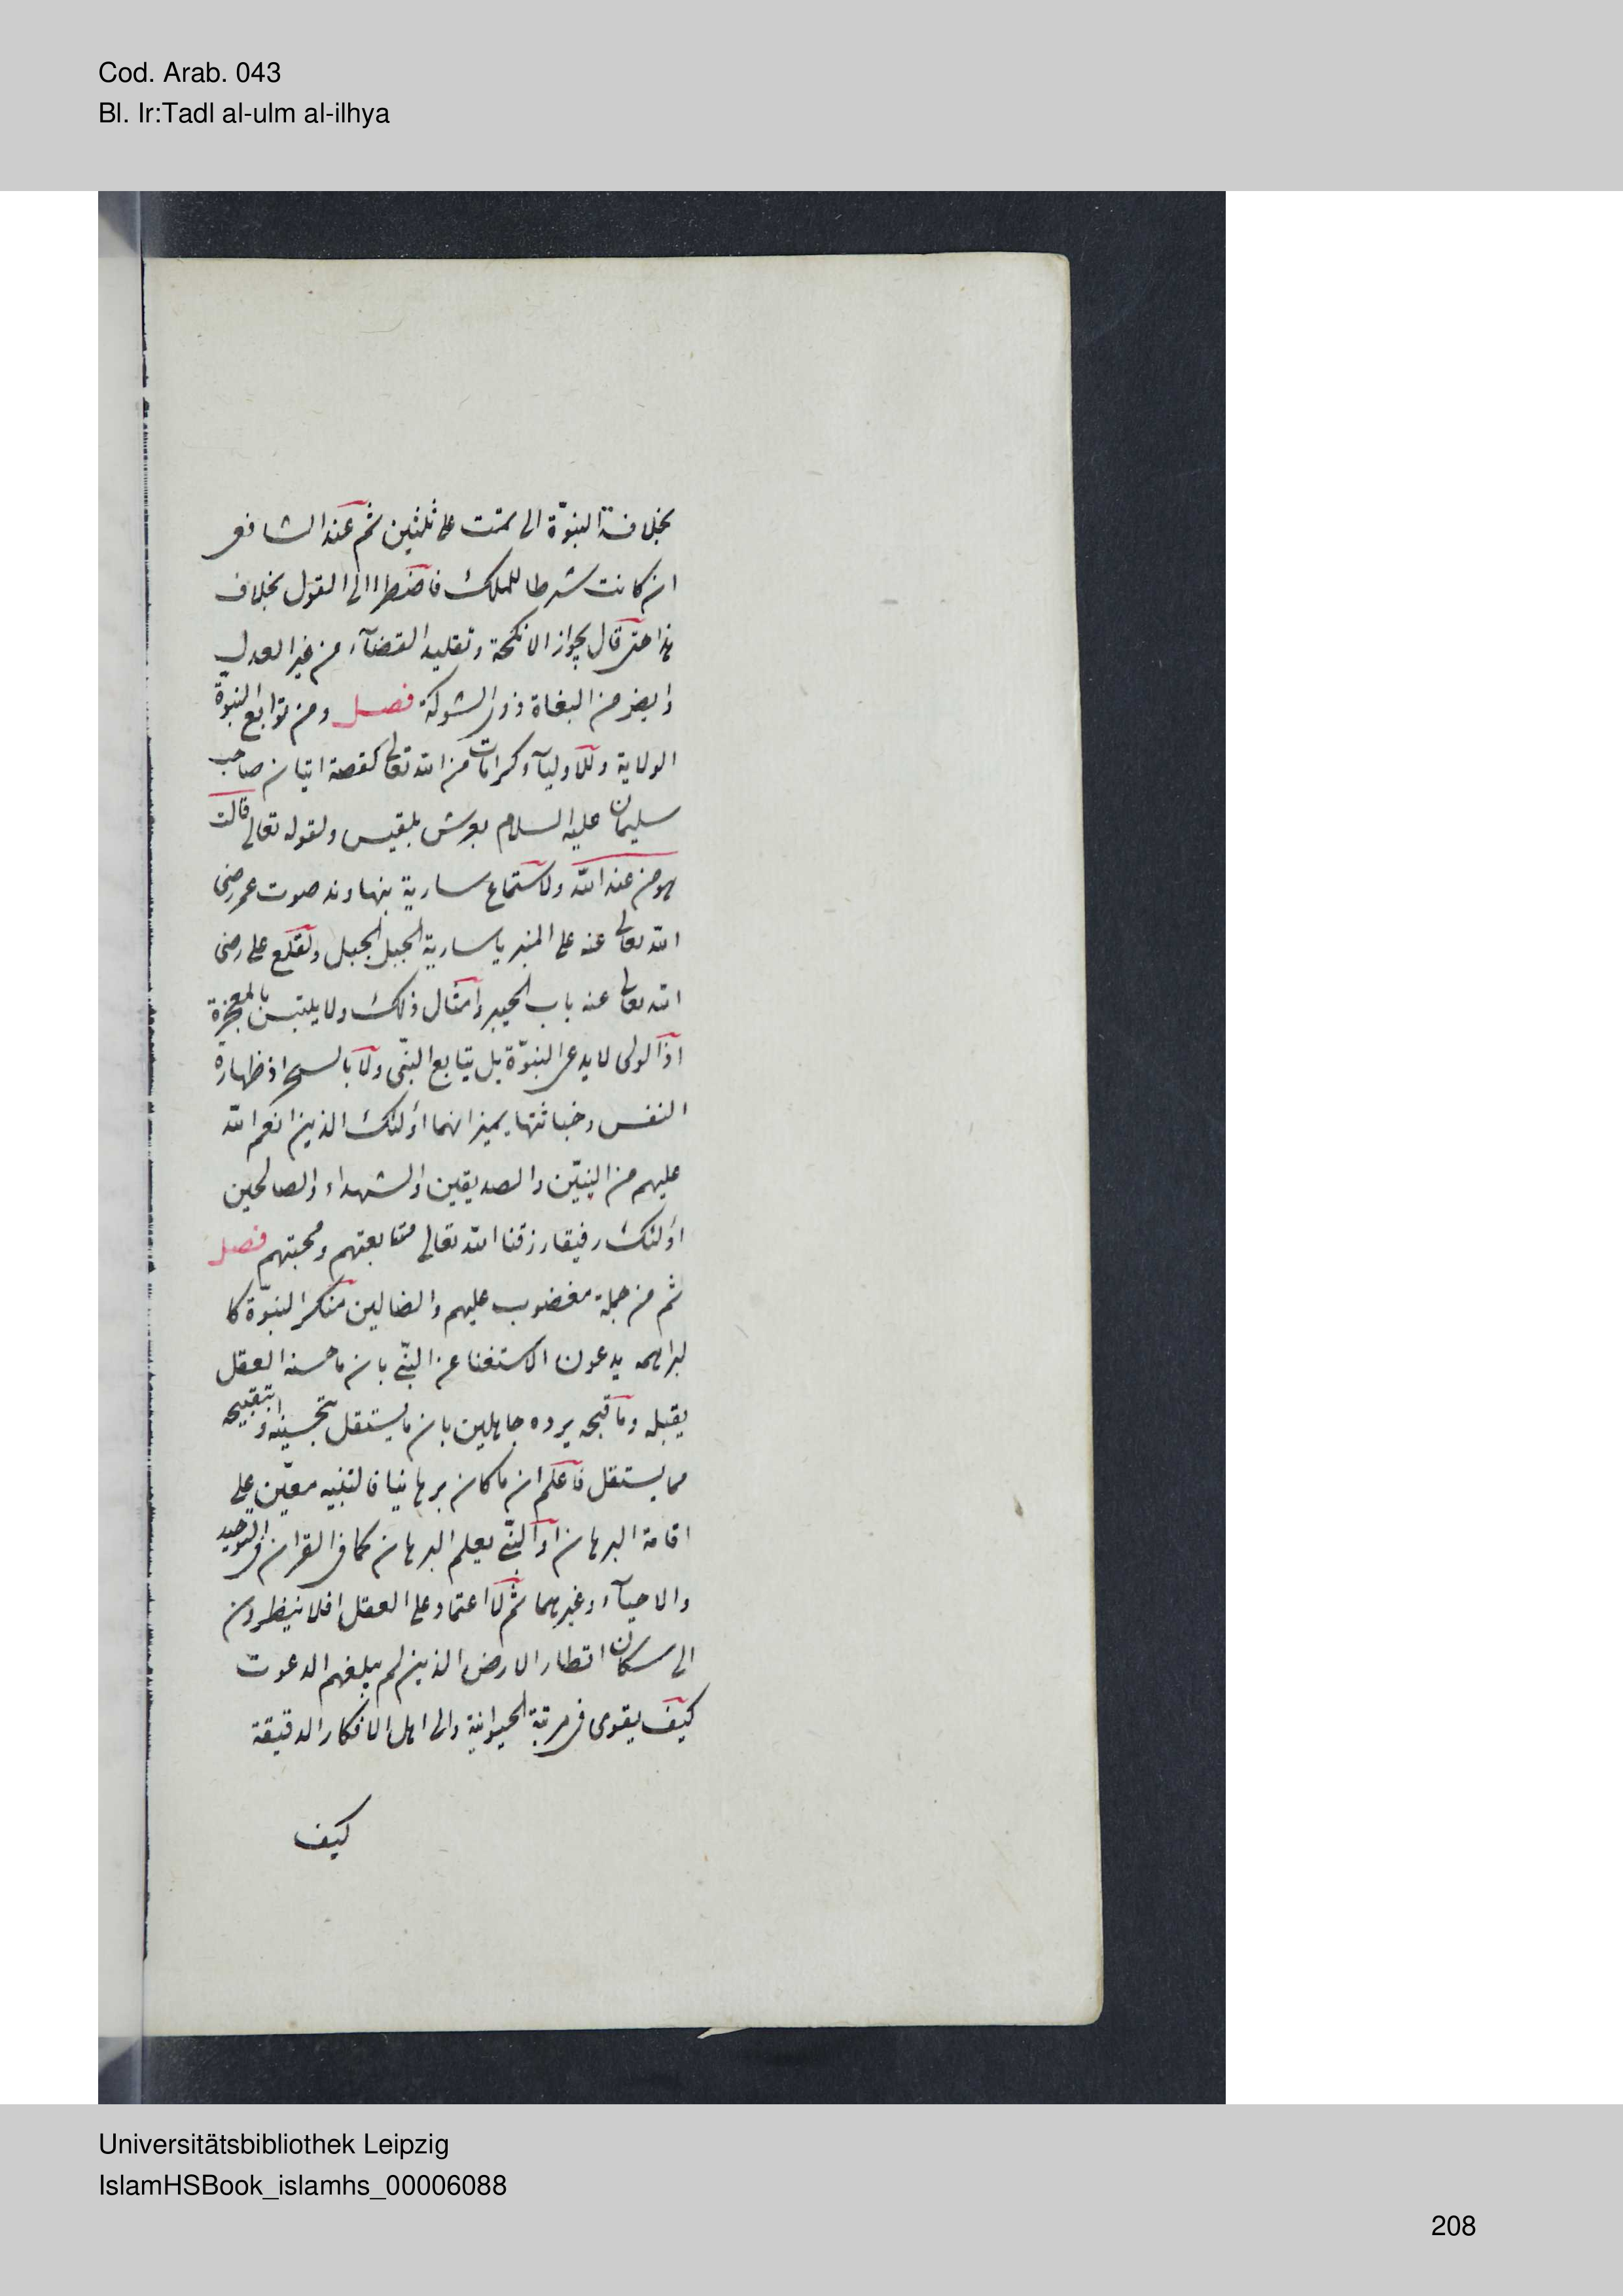 Cod. Arab. 043
Bl. Ir:Tadl al-ulm al-ilhya
بخلافة النبوّة الى تمت على ثلثين ثم عند الشافعى
ان كانت شرطا للملك فاضطر الى القول بخلاف
هذا حتى قال بجواز الانكحة وتقليد القضآء من غير العدل
وايضر من البغاة ذوى الشوكة فصل ومن توابع النبوة
الولاية وللاوليآء كرامات من الله تعالى كقصة اتيان صاحب
سليمان عليه السلام بعرش بلقيس ولقوله تعالى قالت
هو من عند الله ولاستماع سارية بنهاوند صوت عمر رضى
الله تعالى عنه على المنبر يا سارية الجبل الجبل ولقلع على رضى
الله تعالى عنه باب الخيبر وامثال ذلك ولا يلتبس بالمعجزة
اذ الولى لا يدعى النبوّة بل يتابع النبّى ولا بالسحر اذ طهارة
النفس وخباثتها يميزانهما اولئك الذين انعم الله
عليهم من النبيّن والصديقين والشهداء والصالحين
اولئك رفيقا رزقنا الله تعالى متابعتهم ومحبتهم فصل
ثم من جملة مغضوب عليهم والضالين منكر النبوّة كا
لبراهمه يدعون الاستغنا عن النبّى بان ما حسنه العقل
يقبله وما قبحه يرده جاهلين بان ما يستقل بتحسينه و بتقبيحه
مما يستقل فاعلم ان ما كان برهانيا فالتنبيه معيّن على
اقامة البرهان او النبّى يعلم البرهان كما فى القران فى التوحيد
والاحيآء وغيرهما ثم لا اعتماد على العقل افلا ينظرون
الى سكان اقطار الارض الذين لم يبلغهم الدعوت
كيف يقوى فى مرتبة الحيوانية والى اهل الافكار الدقيقة
كيف
Universitätsbibliothek Leipzig
IslamHSBook_islamhs_00006088
208